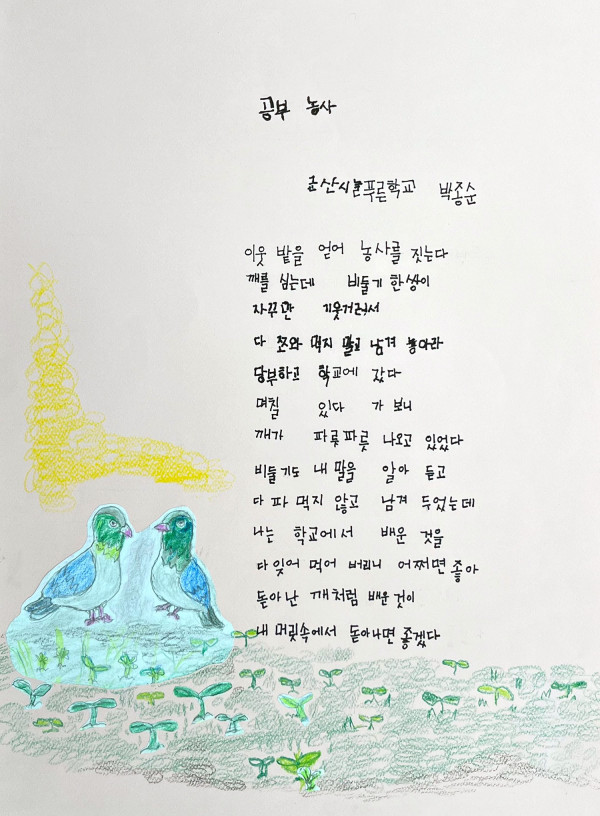 공부 농사
군산시늘푸른학교 박종순
이웃 밭을 얻어 농사를 짓는다
깨를 심는데 비둘기 한쌍이
자꾸만 기웃거려서
다 쪼와 먹지 말고 남겨 놓아라
당부하고 학교에 갔다
며칠 있다 가 보니
깨가 파릇파릇 나오고 있었다
비둘기도 내 말을 알아 듣고
다 파 먹지 않고 남겨 두었는데
나는 학교에서 배운 것을
다 잊어 먹어 버리니 어쩌면 좋아
돋아난 깨처럼 배운것이
내 머릿속에서 돋아나면 좋겠다